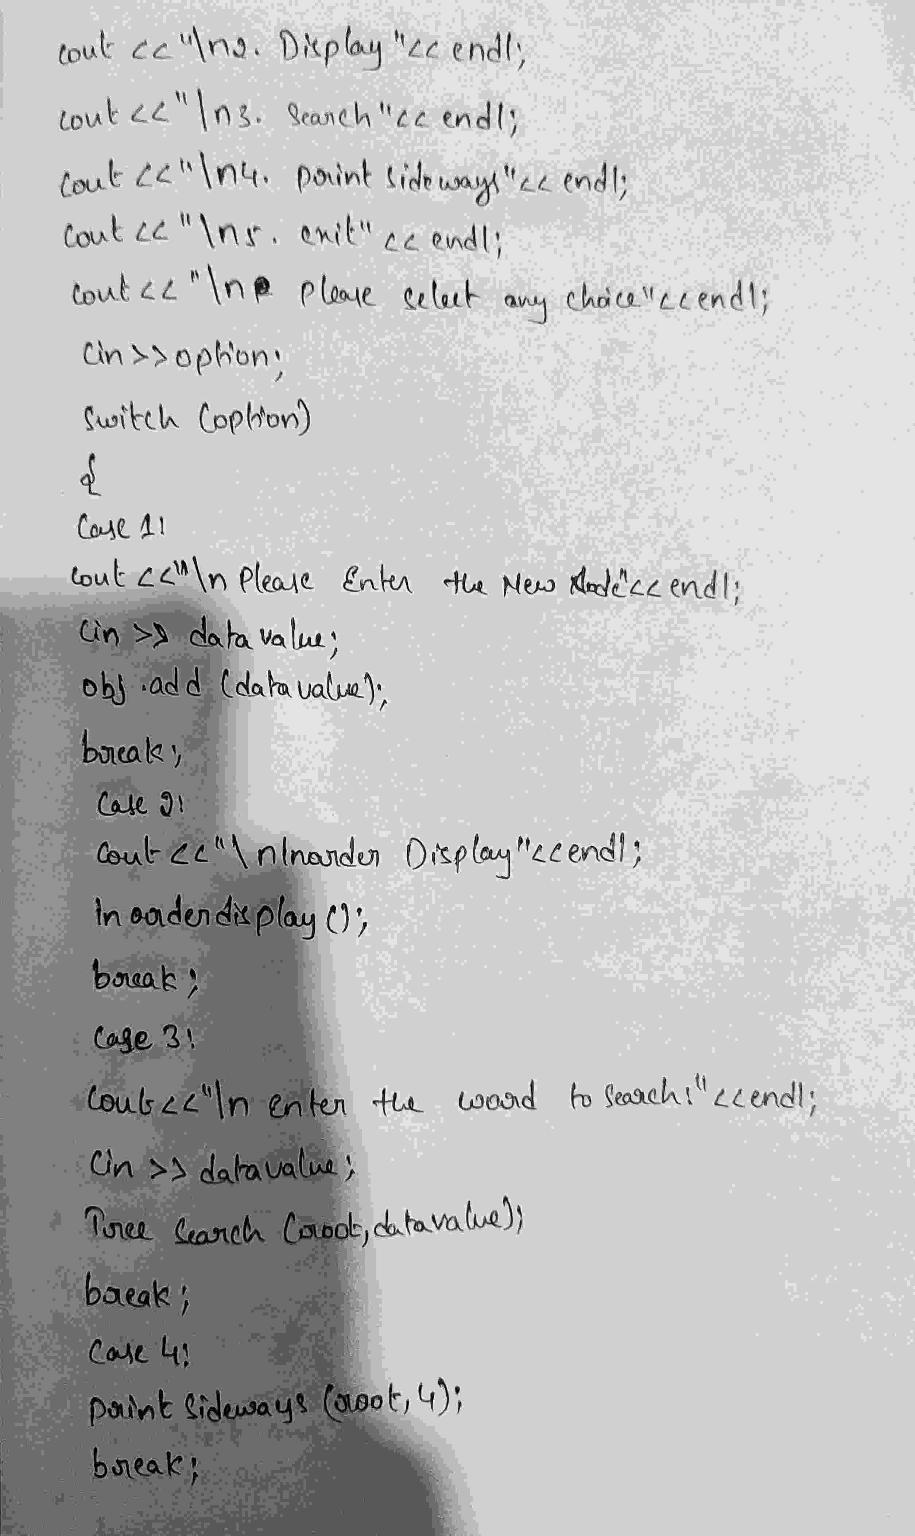 cout <<"\n2. Display"<< endl;
cout <<"\n3. Search"<< endl;
cout <<"\n4. print sideways"<< endl;
cout <<"\n5. exit" << endl;
cout <<"\n please select any choice"<<endl;
cin>>option;
switch (option)
{
Case 1:
cout <<"\n Please Enter the New Node"<< endl;
cin >> data value;
obj .add (data value);
break;
Case 2:
cout <<"\nInorder Display"<<endl;
In order display ();
break;
Case 3:
cout <<"\n enter the word to search:"<<endl;
cin >> datavalue;
Tree Search (root, datavalue);
break;
Case 4:
print Sideways (root, 4);
break;